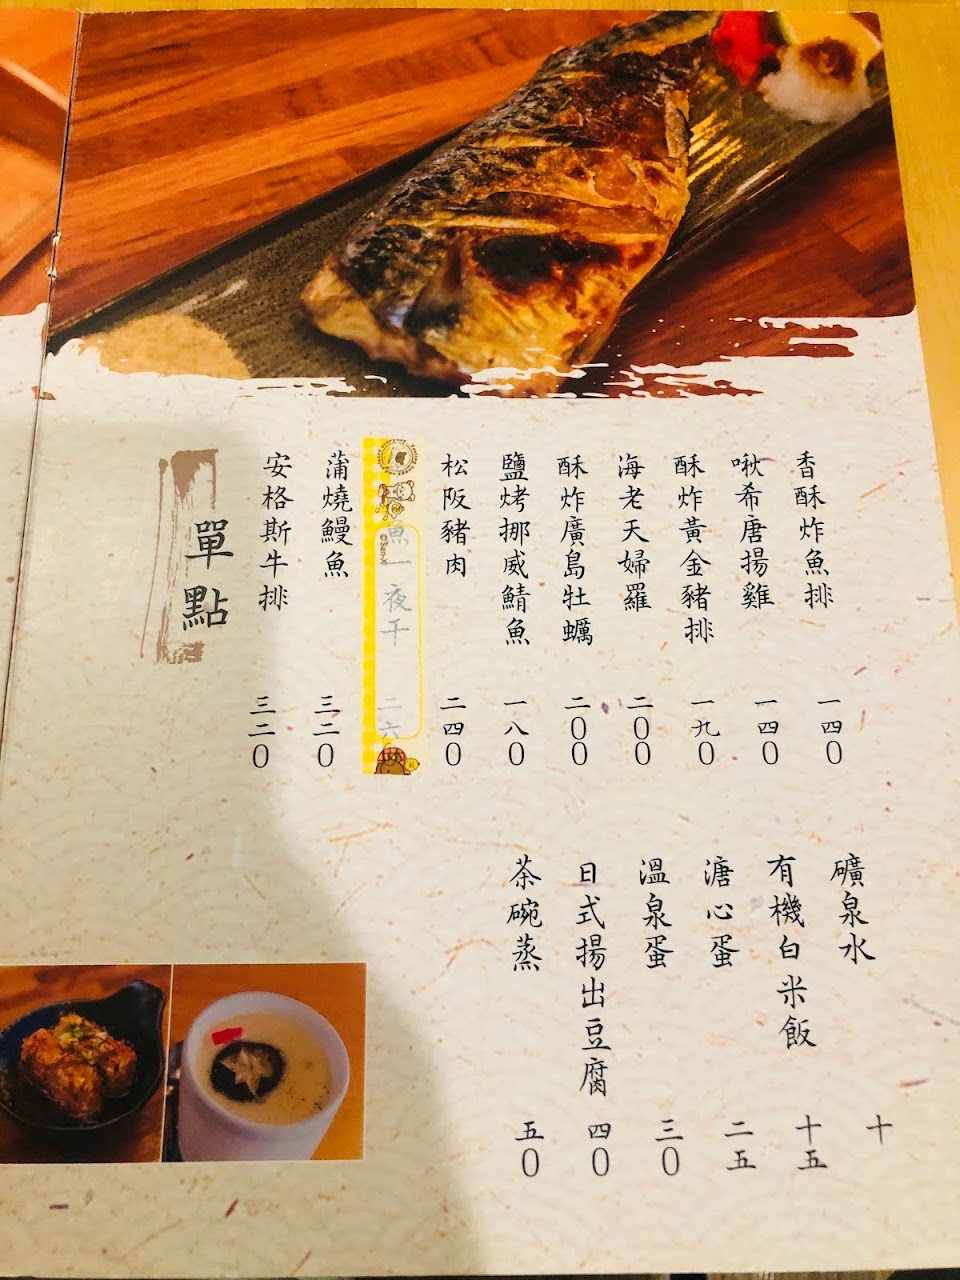 單點
安格斯牛排 三二〇
蒲燒鰻魚 三二〇
魚一夜干 二六
松阪豬肉 二四〇
鹽烤挪威鯖魚 一八〇
酥炸廣島牡蠣 二〇〇
海老天婦羅 二〇〇
酥炸黃金豬排 一九〇
啾希唐揚雞 一四〇
香酥炸魚排 一四〇
茶碗蒸 五〇
日式揚出豆腐 四〇
溫泉蛋 三〇
溏心蛋 二五
有機白米飯 十五
礦泉水 十